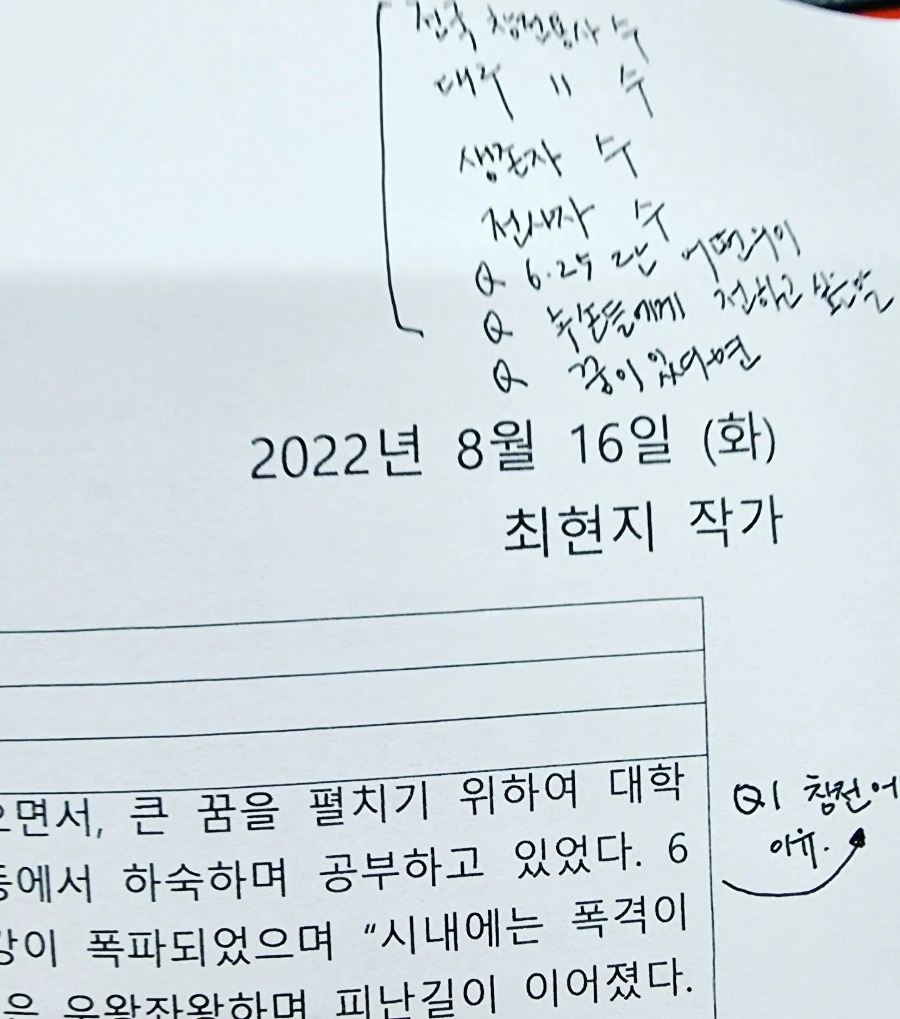 전국 참전용사 수
대구 〃 수
생존자 수
전사자 수
Q 6.25란 어떤 의미
Q 후손들에게 전하고 싶은 말
Q 꿈이 있다면
2022년 8월 16일 (화)
최현지 작가
으면서, 큰 꿈을 펼치기 위하여 대학
등에서 하숙하며 공부하고 있었다. 6
강이 폭파되었으며 “시내에는 폭격이
은 우왕좌왕하며 피난길이 이어졌다.
Q1 참전
이유.